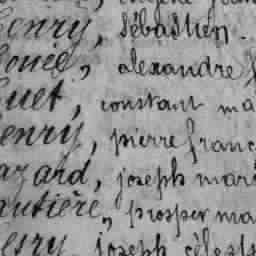 henry, sébastien.
alexandre
uet, constant ma
enry, pierre franc
azard, joseph mari
autière, prosper ma
esry, joseph célest